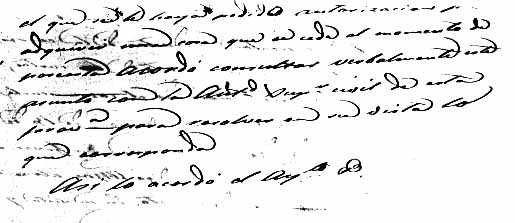 el que se le haya pedido autorizacion p
adquirir una cosa que se cede al momento de
acordó consultar verbalmente este
punto con la Autd. Supr. civil de esta
prova. para resolver en su vista lo
que corresponda
Asi lo acordó el Aytto.